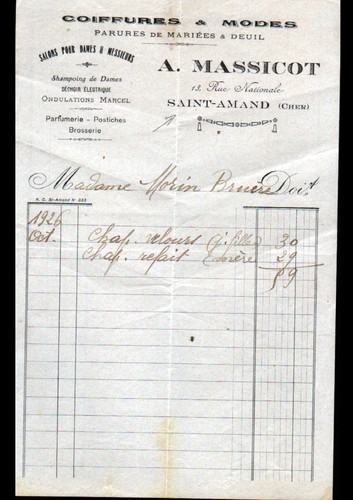 COIFFURES & MODES
PARURES DE MARIÉES & DEUIL
SALONS POUR DAMES & MESSIEURS
Shampoing de Dames
SÉCHOIR ÉLECTRIQUE
ONDULATIONS MARCEL
Parfumerie - Postiches
Brosserie
A. MASSICOT
13, Rue Nationale
SAINT-AMAND (CHER)
Madame Morin Bruère Doit
R. C. St-Amand N° 333
1926
Oct. Chap. velours g. fille 30
Chap. refait mère 29
59